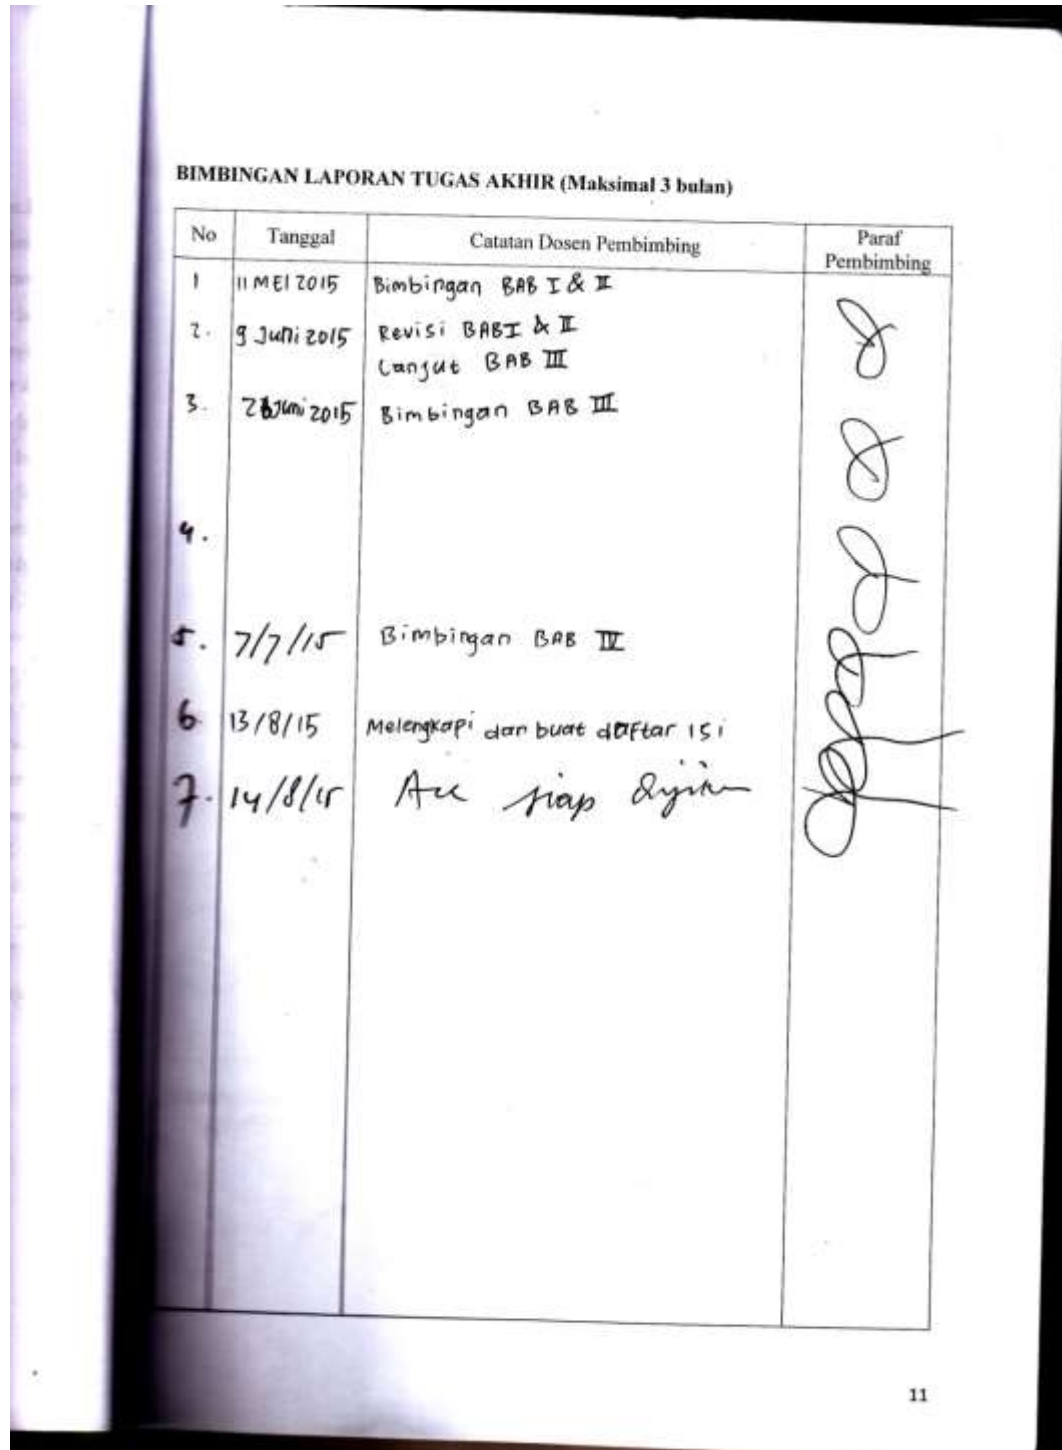 BIMBINGAN LAPORAN TUGAS AKHIR (Maksimal 3 bulan)
No Tanggal Catatan Dosen Pembimbing Paraf Pembimbing
1 11 MEI 2015 Bimbingan BAB I & II
2. 9 Juni 2015 Revisi BAB I & II
Lanjut BAB III
3. Juni 2015 Bimbingan BAB III
4.
5. 7/7/15 Bimbingan BAB IV
6 13/8/15 Melengkapi dan buat daftar isi
7. 14/8/15 Acc siap
11